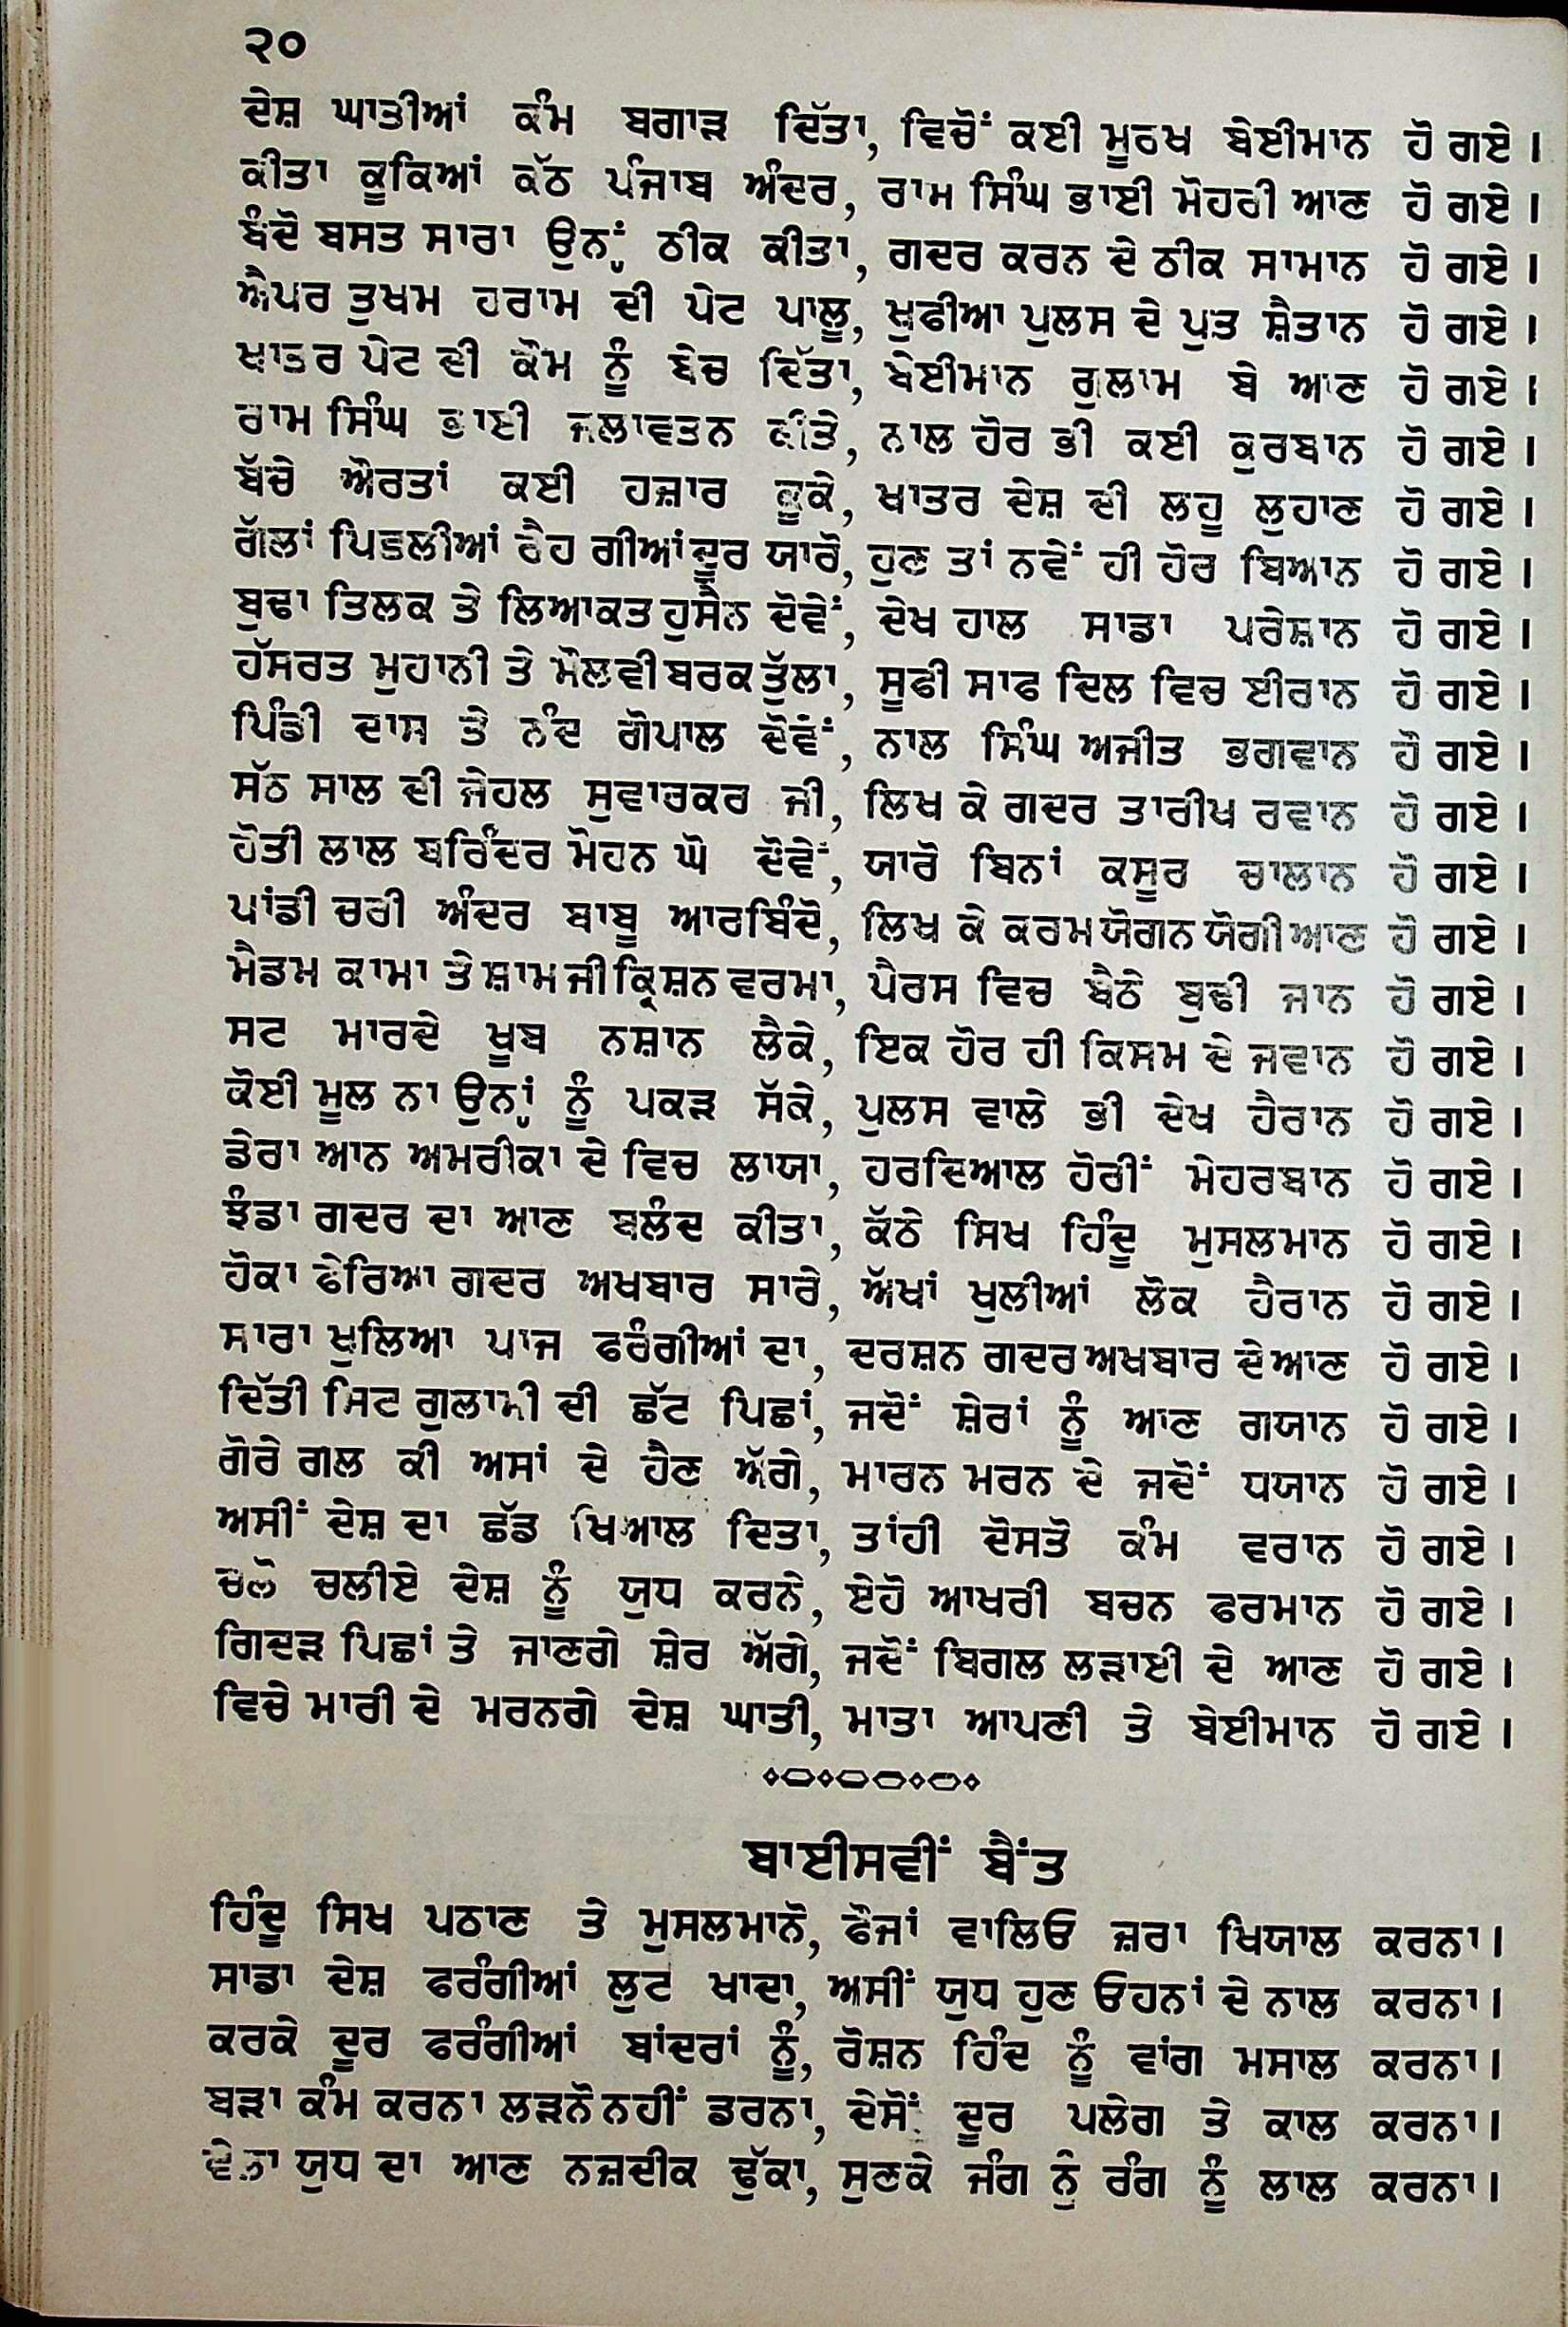 ੨੦
ਦੇਸ਼ ਘਾਤੀਆਂ ਕੰਮ ਬਗਾੜ ਦਿੱਤਾ, ਵਿਚੋਂ ਕਈ ਮੂਰਖ ਬੇਈਮਾਨ ਹੋ ਗਏ।
ਕੀਤਾ ਕੂਕਿਆਂ ਕੱਠ ਪੰਜਾਬ ਅੰਦਰ, ਰਾਮ ਸਿੰਘ ਭਾਈ ਮੋਹਰੀ ਆਣ ਹੋ ਗਏ।
ਬੰਦੋ ਬਸਤ ਸਾਰਾ ਉਨ੍ਹਾਂ ਠੀਕ ਕੀਤਾ, ਗਦਰ ਕਰਨ ਦੇ ਠੀਕ ਸਾਮਾਨ ਹੋ ਗਏ।
ਐਪਰ ਤੁਖਮ ਹਰਾਮ ਦੀ ਪੇਟ ਪਾਲੂ, ਖੁਫੀਆ ਪੁਲਸ ਦੇ ਪੁਤ ਸ਼ੈਤਾਨ ਹੋ ਗਏ।
ਖਾਤਰ ਪੇਟ ਦੀ ਕੌਮ ਨੂੰ ਵੇਚ ਦਿੱਤਾ, ਬੇਈਮਾਨ ਗੁਲਾਮ ਬੇ ਆਣ ਹੋ ਗਏ।
ਰਾਮ ਸਿੰਘ ਭਾਈ ਜਲਾਵਤਨ ਕੀਤੇ, ਨਾਲ ਹੋਰ ਭੀ ਕਈ ਕੁਰਬਾਨ ਹੋ ਗਏ।
ਬੱਚੇ ਔਰਤਾਂ ਕਈ ਹਜ਼ਾਰ ਕੂਕੇ, ਖਾਤਰ ਦੇਸ਼ ਦੀ ਲਹੂ ਲੁਹਾਣ ਹੋ ਗਏ।
ਗੱਲਾਂ ਪਿਛਲੀਆਂ ਰੈਹ ਗੀਆਂ ਦੂਰ ਯਾਰੋ, ਹੁਣ ਤਾਂ ਨਵੇਂ ਹੀ ਹੋਰ ਬਿਆਨ ਹੋ ਗਏ।
ਬੁਢਾ ਤਿਲਕ ਤੇ ਲਿਆਕਤ ਹੁਸੈਨ ਦੋਵੇਂ, ਦੇਖ ਹਾਲ ਸਾਡਾ ਪਰੇਸ਼ਾਨ ਹੋ ਗਏ।
ਹੱਸਰਤ ਮੁਹਾਨੀ ਤੇ ਮੌਲਵੀ ਬਰਕ ਤੁੱਲਾ, ਸੂਫੀ ਸਾਫ ਦਿਲ ਵਿਚ ਈਰਾਨ ਹੋ ਗਏ।
ਪਿੰਡੀ ਦਾਸ ਤੇ ਨੰਦ ਗੋਪਾਲ ਦੋਵੇਂ, ਨਾਲ ਸਿੰਘ ਅਜੀਤ ਭਗਵਾਨ ਹੋ ਗਏ।
ਸੱਠ ਸਾਲ ਦੀ ਜੇਹਲ ਸੁਵਾਰਕਰ ਜੀ, ਲਿਖ ਕੇ ਗਦਰ ਤਾਰੀਖ ਰਵਾਨ ਹੋ ਗਏ।
ਹੋਤੀ ਲਾਲ ਬਰਿੰਦਰ ਮੋਹਨ ਘੋ ਦੋਵੇਂ, ਯਾਰੋ ਬਿਨਾਂ ਕਸੂਰ ਚਾਲਾਨ ਹੋ ਗਏ।
ਪਾਂਡੀ ਚਰੀ ਅੰਦਰ ਬਾਬੂ ਆਰਬਿੰਦੋ, ਲਿਖ ਕੇ ਕਰਮ ਯੋਗਨ ਯੋਗੀ ਆਣ ਹੋ ਗਏ।
ਮੈਡਮ ਕਾਮਾ ਤੇ ਸ਼ਾਮ ਜੀ ਕ੍ਰਿਸ਼ਨ ਵਰਮਾ, ਪੈਰਸ ਵਿਚ ਬੈਠੇ ਬੁਢੀ ਜਾਨ ਹੋ ਗਏ।
ਸਟ ਮਾਰਦੇ ਖੂਬ ਨਸ਼ਾਨ ਲੈਕੇ, ਇਕ ਹੋਰ ਹੀ ਕਿਸਮ ਦੇ ਜਵਾਨ ਹੋ ਗਏ।
ਕੋਈ ਮੂਲ ਨਾ ਉਨ੍ਹਾਂ ਨੂੰ ਪਕੜ ਸੱਕੇ, ਪੁਲਸ ਵਾਲੇ ਭੀ ਦੇਖ ਹੈਰਾਨ ਹੋ ਗਏ।
ਡੇਰਾ ਆਨ ਅਮਰੀਕਾ ਦੇ ਵਿਚ ਲਾਯਾ, ਹਰਦਿਆਲ ਹੋਰੀਂ ਮੇਹਰਬਾਨ ਹੋ ਗਏ।
ਝੰਡਾ ਗਦਰ ਦਾ ਆਣ ਬਲੰਦ ਕੀਤਾ, ਕੱਠੇ ਸਿਖ ਹਿੰਦੂ ਮੁਸਲਮਾਨ ਹੋ ਗਏ।
ਹੋਕਾ ਫੇਰਿਆ ਗਦਰ ਅਖਬਾਰ ਸਾਰੇ, ਅੱਖਾਂ ਖੁਲੀਆਂ ਲੋਕ ਹੈਰਾਨ ਹੋ ਗਏ।
ਸਾਰਾ ਖੁਲਿਆ ਪਾਜ ਫਰੰਗੀਆਂ ਦਾ, ਦਰਸ਼ਨ ਗਦਰ ਅਖਬਾਰ ਦੇ ਆਣ ਹੋ ਗਏ।
ਦਿੱਤੀ ਸਿਟ ਗੁਲਾਮੀ ਦੀ ਛੱਟ ਪਿਛਾਂ, ਜਦੋਂ ਸ਼ੇਰਾਂ ਨੂੰ ਆਣ ਗਯਾਨ ਹੋ ਗਏ।
ਗੋਰੇ ਗਲ ਕੀ ਅਸਾਂ ਦੇ ਹੈਣ ਅੱਗੇ, ਮਾਰਨ ਮਰਨ ਦੇ ਜਦੋਂ ਧਯਾਨ ਹੋ ਗਏ।
ਅਸੀਂ ਦੇਸ਼ ਦਾ ਛੱਡ ਖਿਆਲ ਦਿਤਾ, ਤਾਂਹੀ ਦੋਸਤੋ ਕੰਮ ਵਰਾਨ ਹੋ ਗਏ।
ਚਲੋ ਚਲੀਏ ਦੇਸ਼ ਨੂੰ ਯੁਧ ਕਰਨੇ, ਏਹੋ ਆਖਰੀ ਬਚਨ ਫਰਮਾਨ ਹੋ ਗਏ।
ਗਿਦੜ ਪਿਛਾਂ ਤੇ ਜਾਣਗੇ ਸ਼ੇਰ ਅੱਗੇ, ਜਦੋਂ ਬਿਗਲ ਲੜਾਈ ਦੇ ਆਣ ਹੋ ਗਏ।
ਵਿਚੇ ਮਾਰੀ ਦੇ ਮਰਨਗੇ ਦੇਸ਼ ਘਾਤੀ, ਮਾਤਾ ਆਪਣੀ ਤੇ ਬੇਈਮਾਨ ਹੋ ਗਏ।
ਬਾਈਸਵੀਂ ਬੈਂਤ
ਹਿੰਦੂ ਸਿਖ ਪਠਾਣ ਤੇ ਮੁਸਲਮਾਨੋ, ਫੌਜਾਂ ਵਾਲਿਓ ਜ਼ਰਾ ਖਿਯਾਲ ਕਰਨਾ।
ਸਾਡਾ ਦੇਸ਼ ਫਰੰਗੀਆਂ ਲੁਟ ਖਾਦਾ, ਅਸੀਂ ਯੁਧ ਹੁਣ ਓਹਨਾਂ ਦੇ ਨਾਲ ਕਰਨਾ।
ਕਰਕੇ ਦੂਰ ਫਰੰਗੀਆਂ ਬਾਂਦਰਾਂ ਨੂੰ, ਰੋਸ਼ਨ ਹਿੰਦ ਨੂੰ ਵਾਂਗ ਮਸਾਲ ਕਰਨਾ।
ਬੜਾ ਕੰਮ ਕਰਨਾ ਲੜਨੋ ਨਹੀਂ ਡਰਨਾ, ਦੇਸੋਂ ਦੂਰ ਪਲੇਗ ਤੇ ਕਾਲ ਕਰਨਾ।
ਵੇਲਾ ਯੁਧ ਦਾ ਆਣ ਨਜ਼ਦੀਕ ਢੁੱਕਾ, ਸੁਣਕੇ ਜੰਗ ਨੂੰ ਰੰਗ ਨੂੰ ਲਾਲ ਕਰਨਾ।